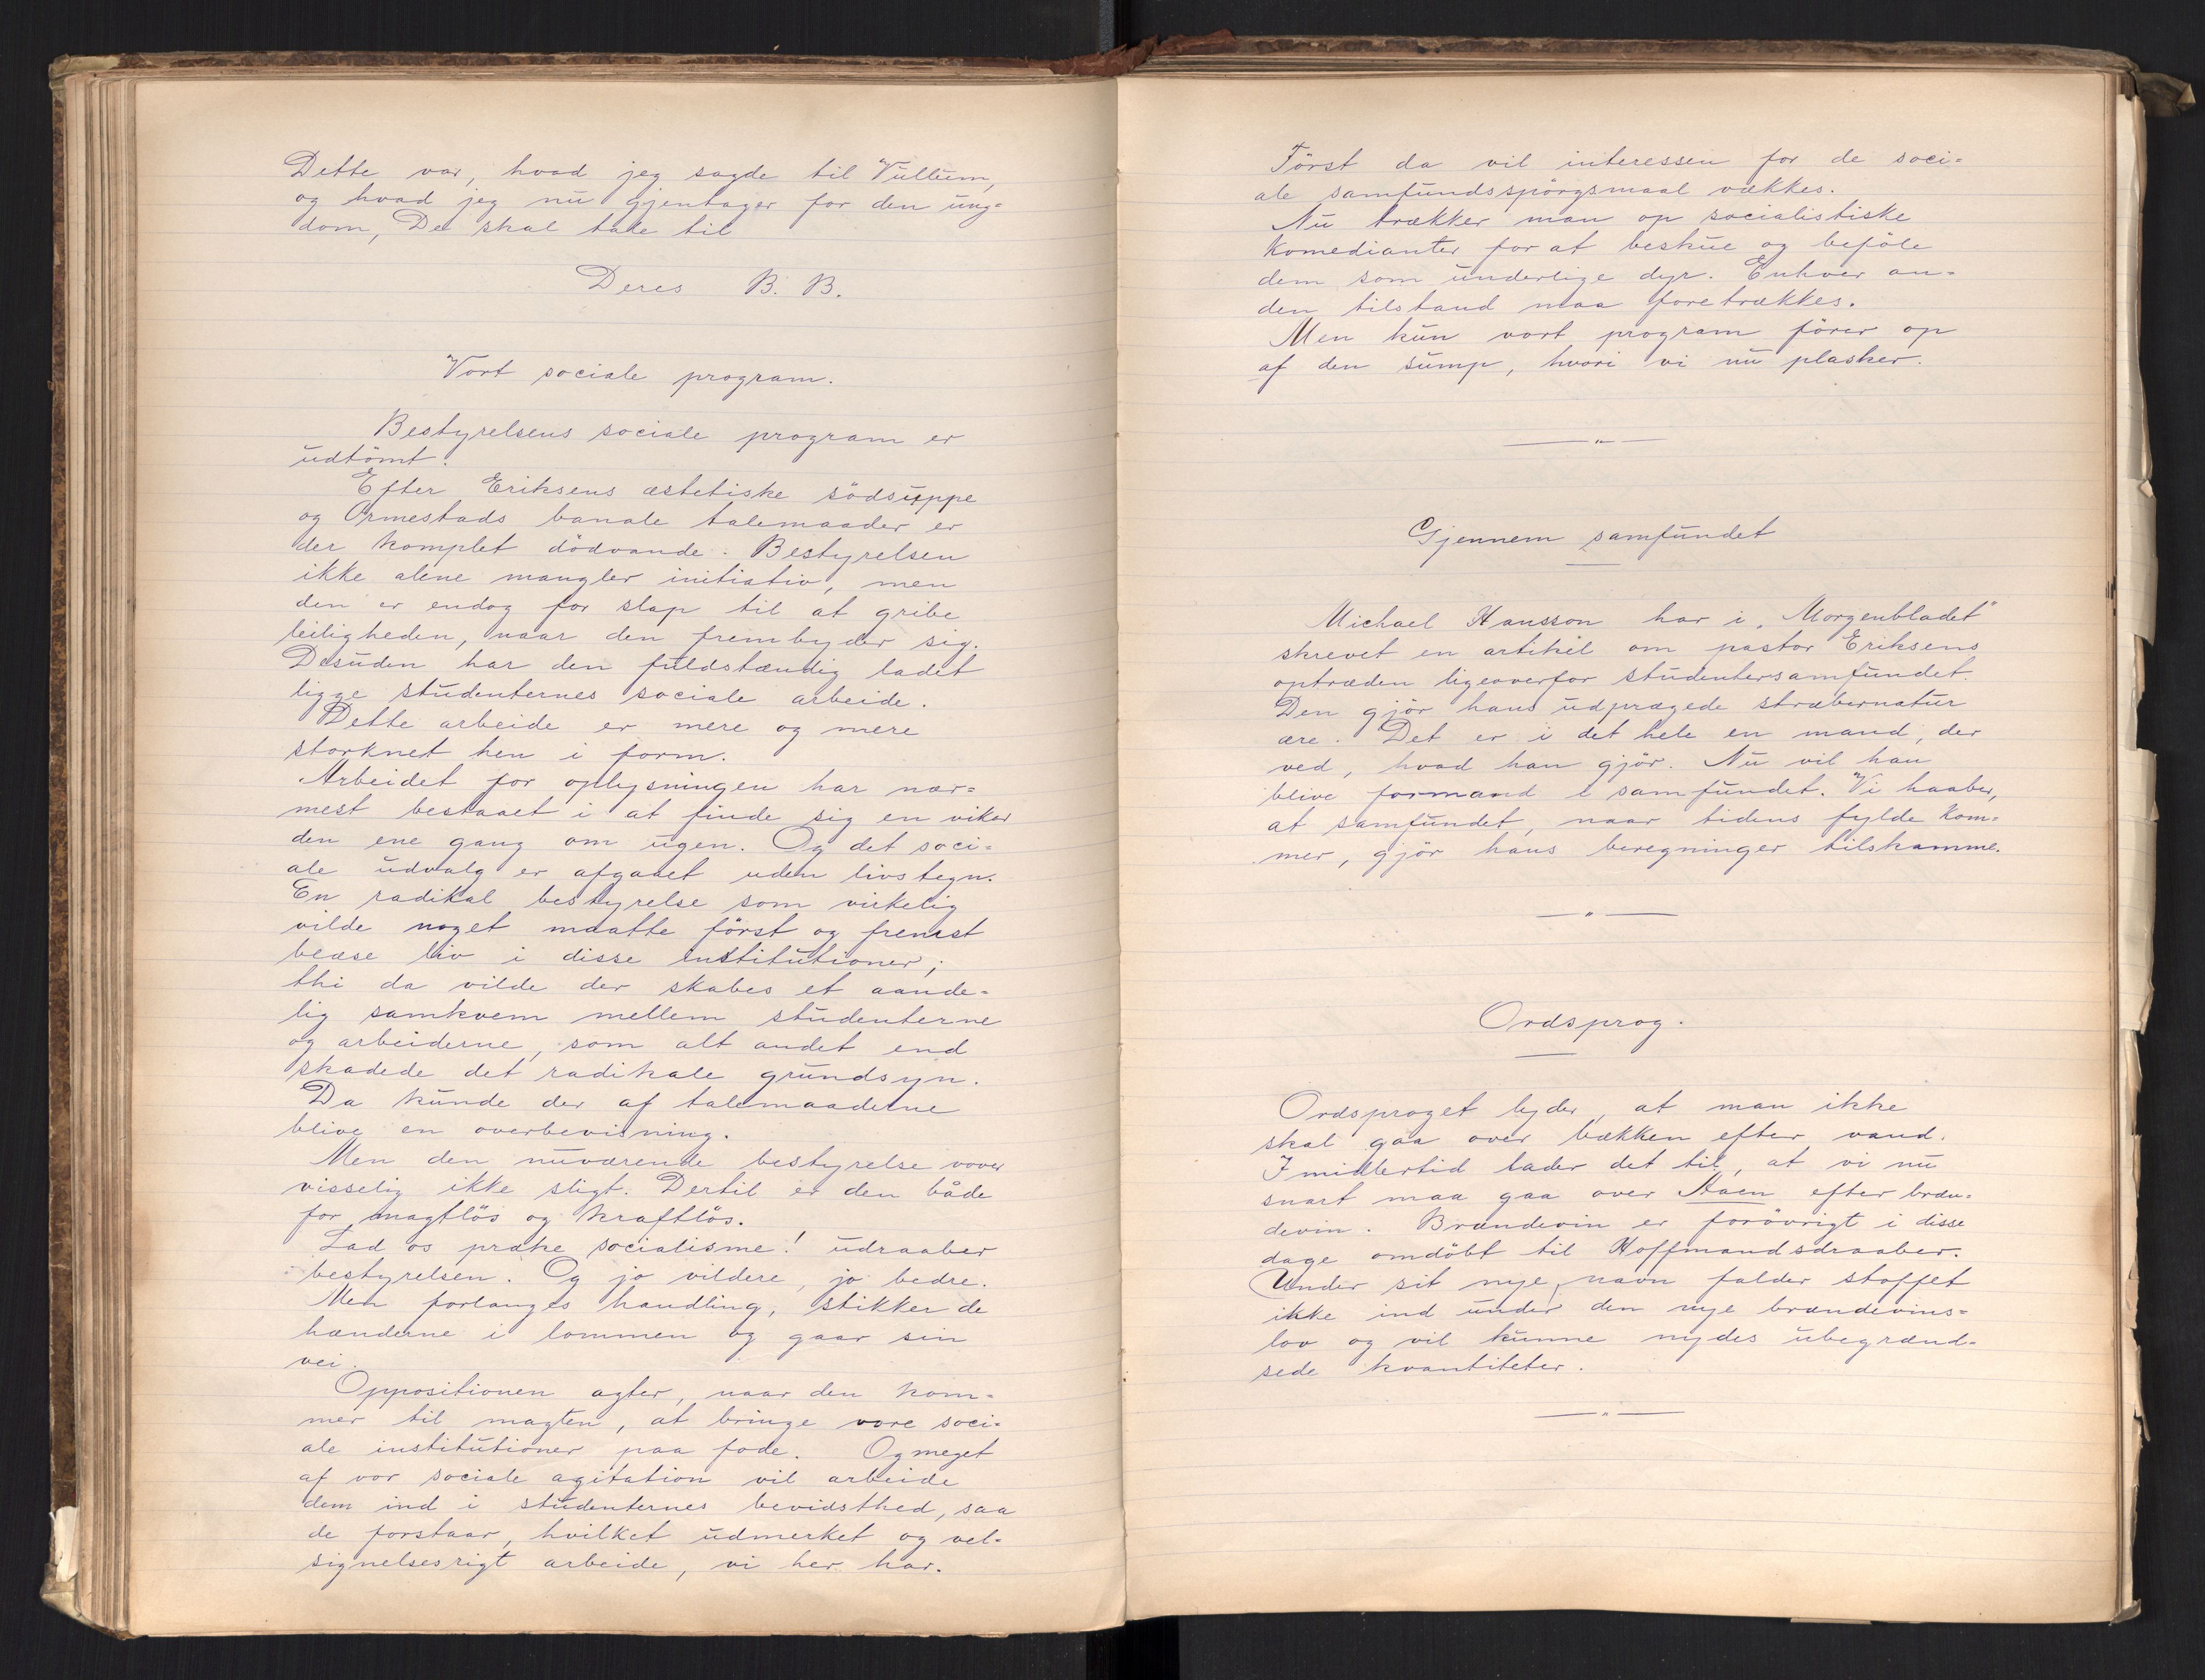 Dette var, hvad jeg sagde til Vullum,
og hvad jeg nu gjentager for den ung=
dom, De skal tale til
Deres B. B.
Vort sociale program.
Bestyrelsens sociale program er
udtömt.
Efter Eriksens æstetiske södsuppe
og Ormestads banale talemaader er
der komplet dödvande. Bestyrelsen
ikke alene mangler initiativ, men
den er endog for slap til at gribe
leiligheden, naar den frembyder sig.
Desuden har den fuldstændig ladet
ligge studenternes sociale arbeide.
Dette arbeide er mere og mere
storknet hen i form.
Arbeidet for oplysningen har nær=
mest bestaaet i at finde sig en vikar
den ene gang om ugen. Og det soci=
ale udvalg er afgaaet uden livstegn.
En radikal bestyrelse som virkelig
vilde noget maatte först og fremst
blæse liv i disse institutioner;
thi da vilde der skabes et aande=
lig samkvem mellem studenterne
og arbeiderne, som alt andet end
skadede det radikale grundsyn.
Da kunde der af talemaaderne
blive en overbevisning.
Men den nuværende bestyrelse vover
visselig ikke sligt. Dertil er den både
for magtlös og kraftlös.
Lad os præke socialisme! udraaber
bestyrelsen. Og jo vildere, jo bedre.
Men forlanges handling, stikker de
hænderne i lommen og gaar sin
vei.
Oppositionen agter, naar den kom=
mer til magten, at bringe vore soci=
ale institutioner paa fode. Og meget
af vor sociale agitation vil arbeide
dem ind i studenternes bevidsthed, saa
de forstaar, hvilket udmerket og vel=
signelsesrigt arbeide, vi her har.
Först da vil interessen for de soci=
ale samfundsspörgsmaal vækkes.
Nu trækker man op socialistiske
komedianter for at beskue og beföle
dem som underlige dyr. Enhver an=
den tilstand maa foretrækkes.
Men kun vort program förer op
af den sump, hvori vi nu plasker.
Gjennem samfundet
Michael Hansson har i "Morgenbladet"
skrevet en artikel om pastor Eriksens
optræden ligeoverfor studentersamfundet.
Den gjör hans udprægede stræbernatur
ære. Det er i det hele en mand, der
ved, hvad han gjör. Nu vil han
blive formand i samfundet. Vi haaber,
at samfundet, naar tidens fylde kom=
mer, gjör hans beregninger tilskamme.
Ordsprog.
Ordsproget lyder, at man ikke
skal gaa over bækken efter vand.
Imidlertid lader det til, at vi nu
snart maa gaa over Aaen efter bræn=
devin. Brændevin er forövrigt i disse
dage omdöbt til Hoffmandsdraaber.
Under sit nye navn falder stoffet
ikke ind under den nye brændevins=
lov og vil kunne nydes ubegrænd=
sede kvantiteter.